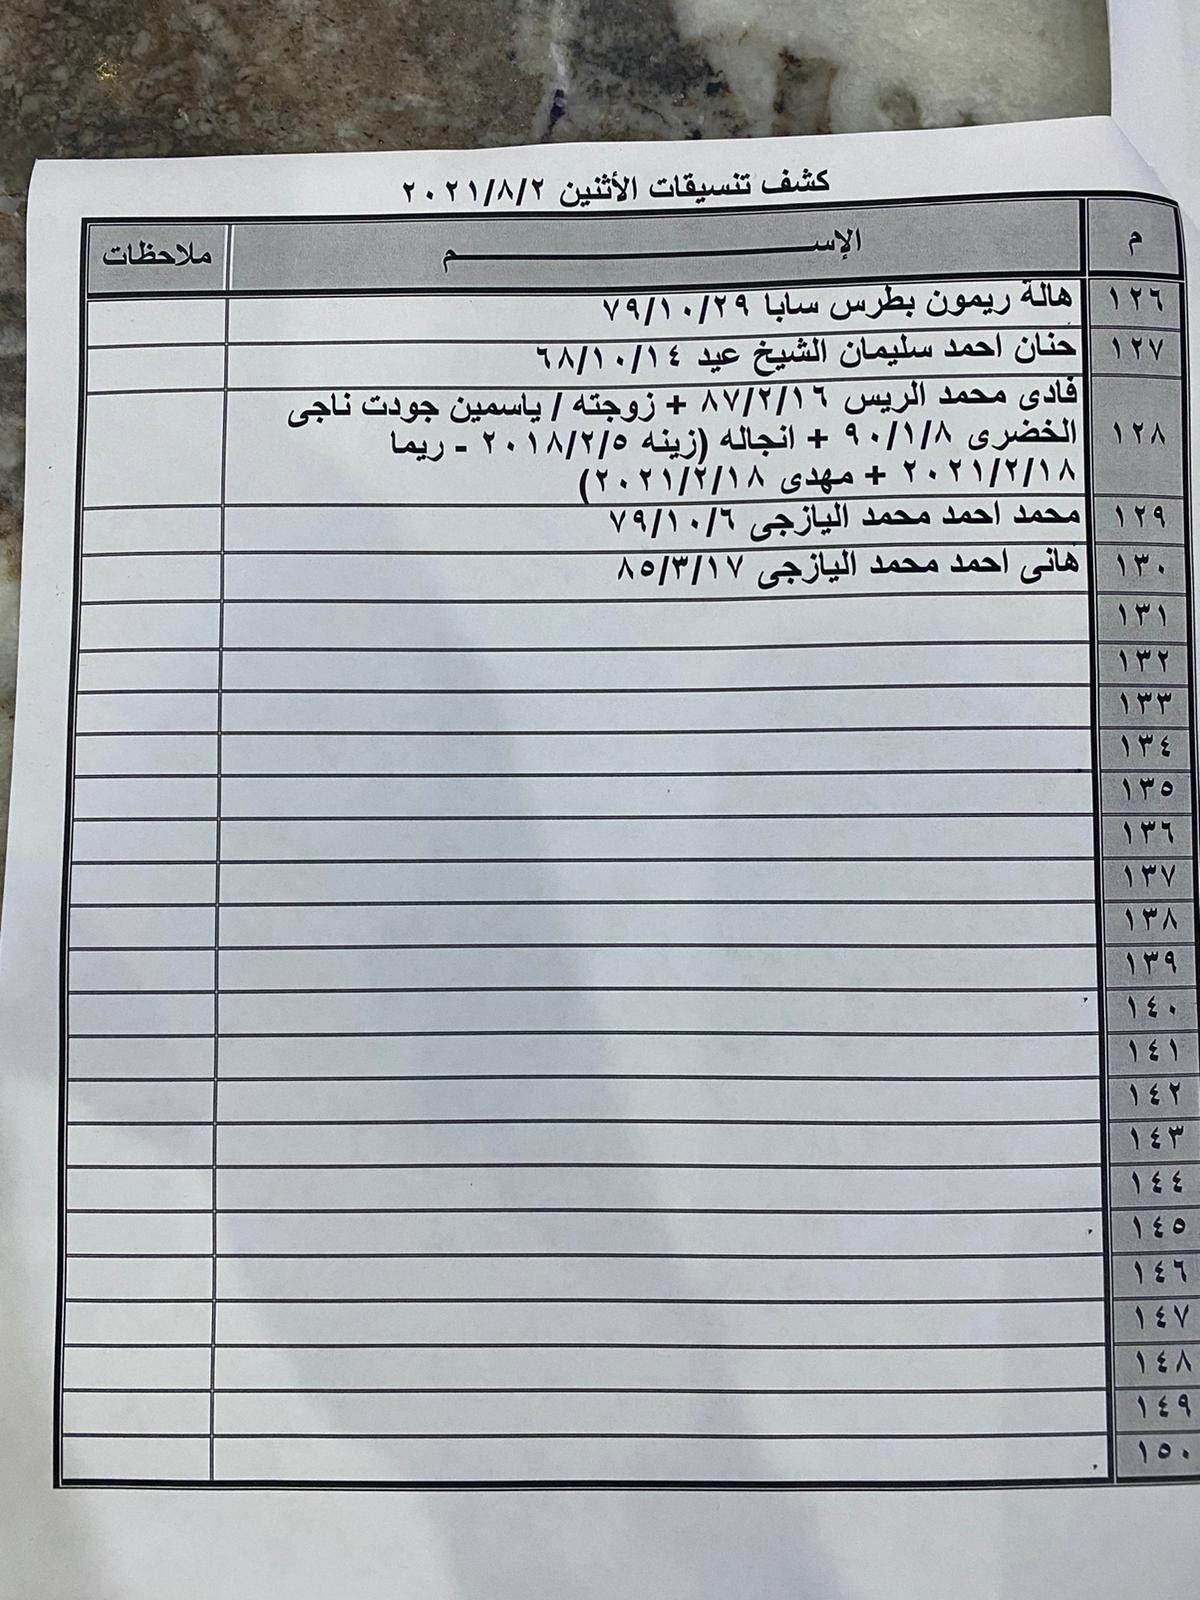 كشف تنسيقات الأثنين ٢٠٢١/٨/٢
م الإســـــــــــــــم ملاحظات
١٢٦ هالة ريمون بطرس سابا ٧٩/١٠/٢٩
١٢٧ حنان احمد سليمان الشيخ عيد ٦٨/١٠/١٤
١٢٨ فادى محمد الريس ٨٧/٢/١٦ + زوجته / ياسمين جودت ناجى
الخضرى ٩٠/١/٨ + انجاله (زينه ٢٠١٨/٢/٥ - ريما
٢٠٢١/٢/١٨ + مهدى ٢٠٢١/٢/١٨)
١٢٩ محمد احمد محمد اليازجى ٧٩/١٠/٦
١٣٠ هانى احمد محمد اليازجى ٨٥/٣/١٧
١٣١
١٣٢
١٣٣
١٣٤
١٣٥
١٣٦
١٣٧
١٣٨
١٣٩
١٤٠
١٤١
١٤٢
١٤٣
١٤٤
١٤٥
١٤٦
١٤٧
١٤٨
١٤٩
١٥٠